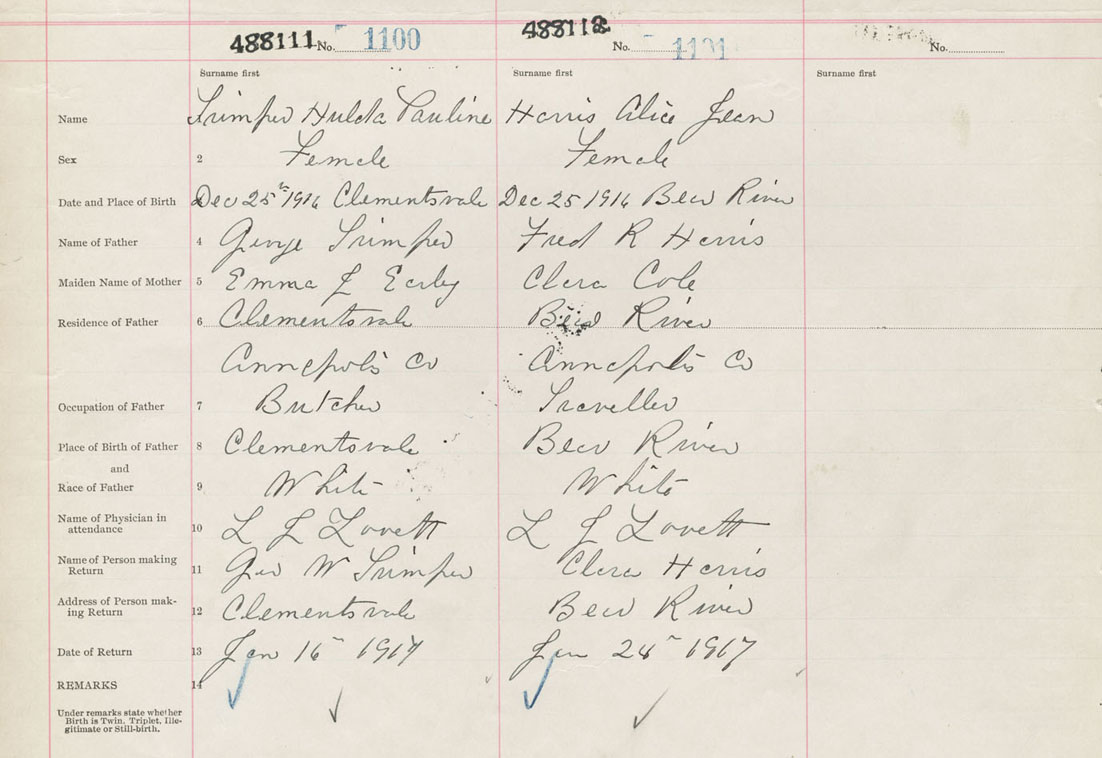 488111 No. 1100 488112 No. 1101 No.
Surname first Surname first Surname first
Name Trimper Hulda Pauline Harris Alice Jean
Sex 2 Female Female
Date and Place of Birth Dec 25th 1916 Clementsvale Dec 25 1916 Bear River
Name of Father 4 George Trimper Fred R Harris
Maiden Name of Mother 5 Emma J Early Clara Cole
Residence of Father 6 Clementsvale Bear River
Annapolis Co Annapolis Co
Occupation of Father 7 Butcher Traveller
Place of Birth of Father 8 Clementsvale Bear River
and
Race of Father 9 White White
Name of Physician in
attendance 10 L J Lovett L J Lovett
Name of Person making
Return 11 Geo W Trimper Clara Harris
Address of Person mak-
ing Return 12 Clementsvale Bear River
Date of Return 13 Jan 16 1917 Jan 1917
REMARKS 14
Under remarks state whether
Birth is Twin, Triplet, Ille-
gitimate or Still-birth.